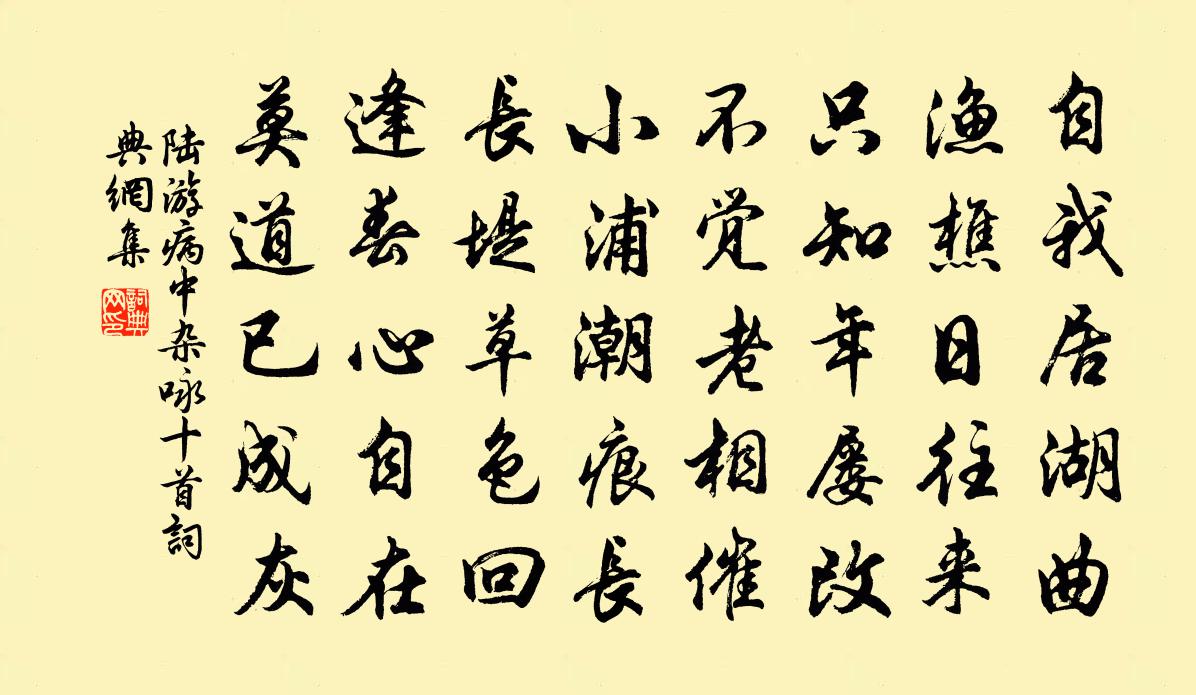 自我居湖曲
漁樵日往来
只知年屡改
不觉老相催
小浦潮痕長
長堤草色回
逢春心自在
莫道已成灰
陆游病中杂咏十首詞
典網集
詞典
网印